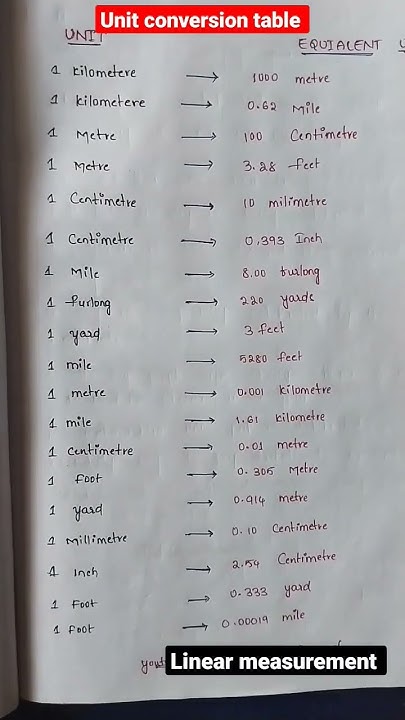 Unit conversion table
UNIT
EQUIALENT U
1 kilometere → 1000 metre
1 kilometere → 0.62 Mile
1 Metre → 100 Centimetre
1 Metre → 3.28 feet
1 Centimetre → 10 milimetre
1 Centimetre → 0.393 Inch
1 Mile → 8.00 furlong
1 furlong → 220 yards
1 yard → 3 feet
1 mile → 5280 feet
1 metre → 0.001 kilometre
1 mile → 1.61 kilometre
1 Centimetre → 0.01 metre
1 foot → 0.305 Metre
1 yard → 0.914 metre
1 Millimetre → 0.10 Centimetre
1 Inch → 2.54 Centimetre
1 Foot → 0.333 yard
1 Foot → 0.00019 mile
Linear measurement